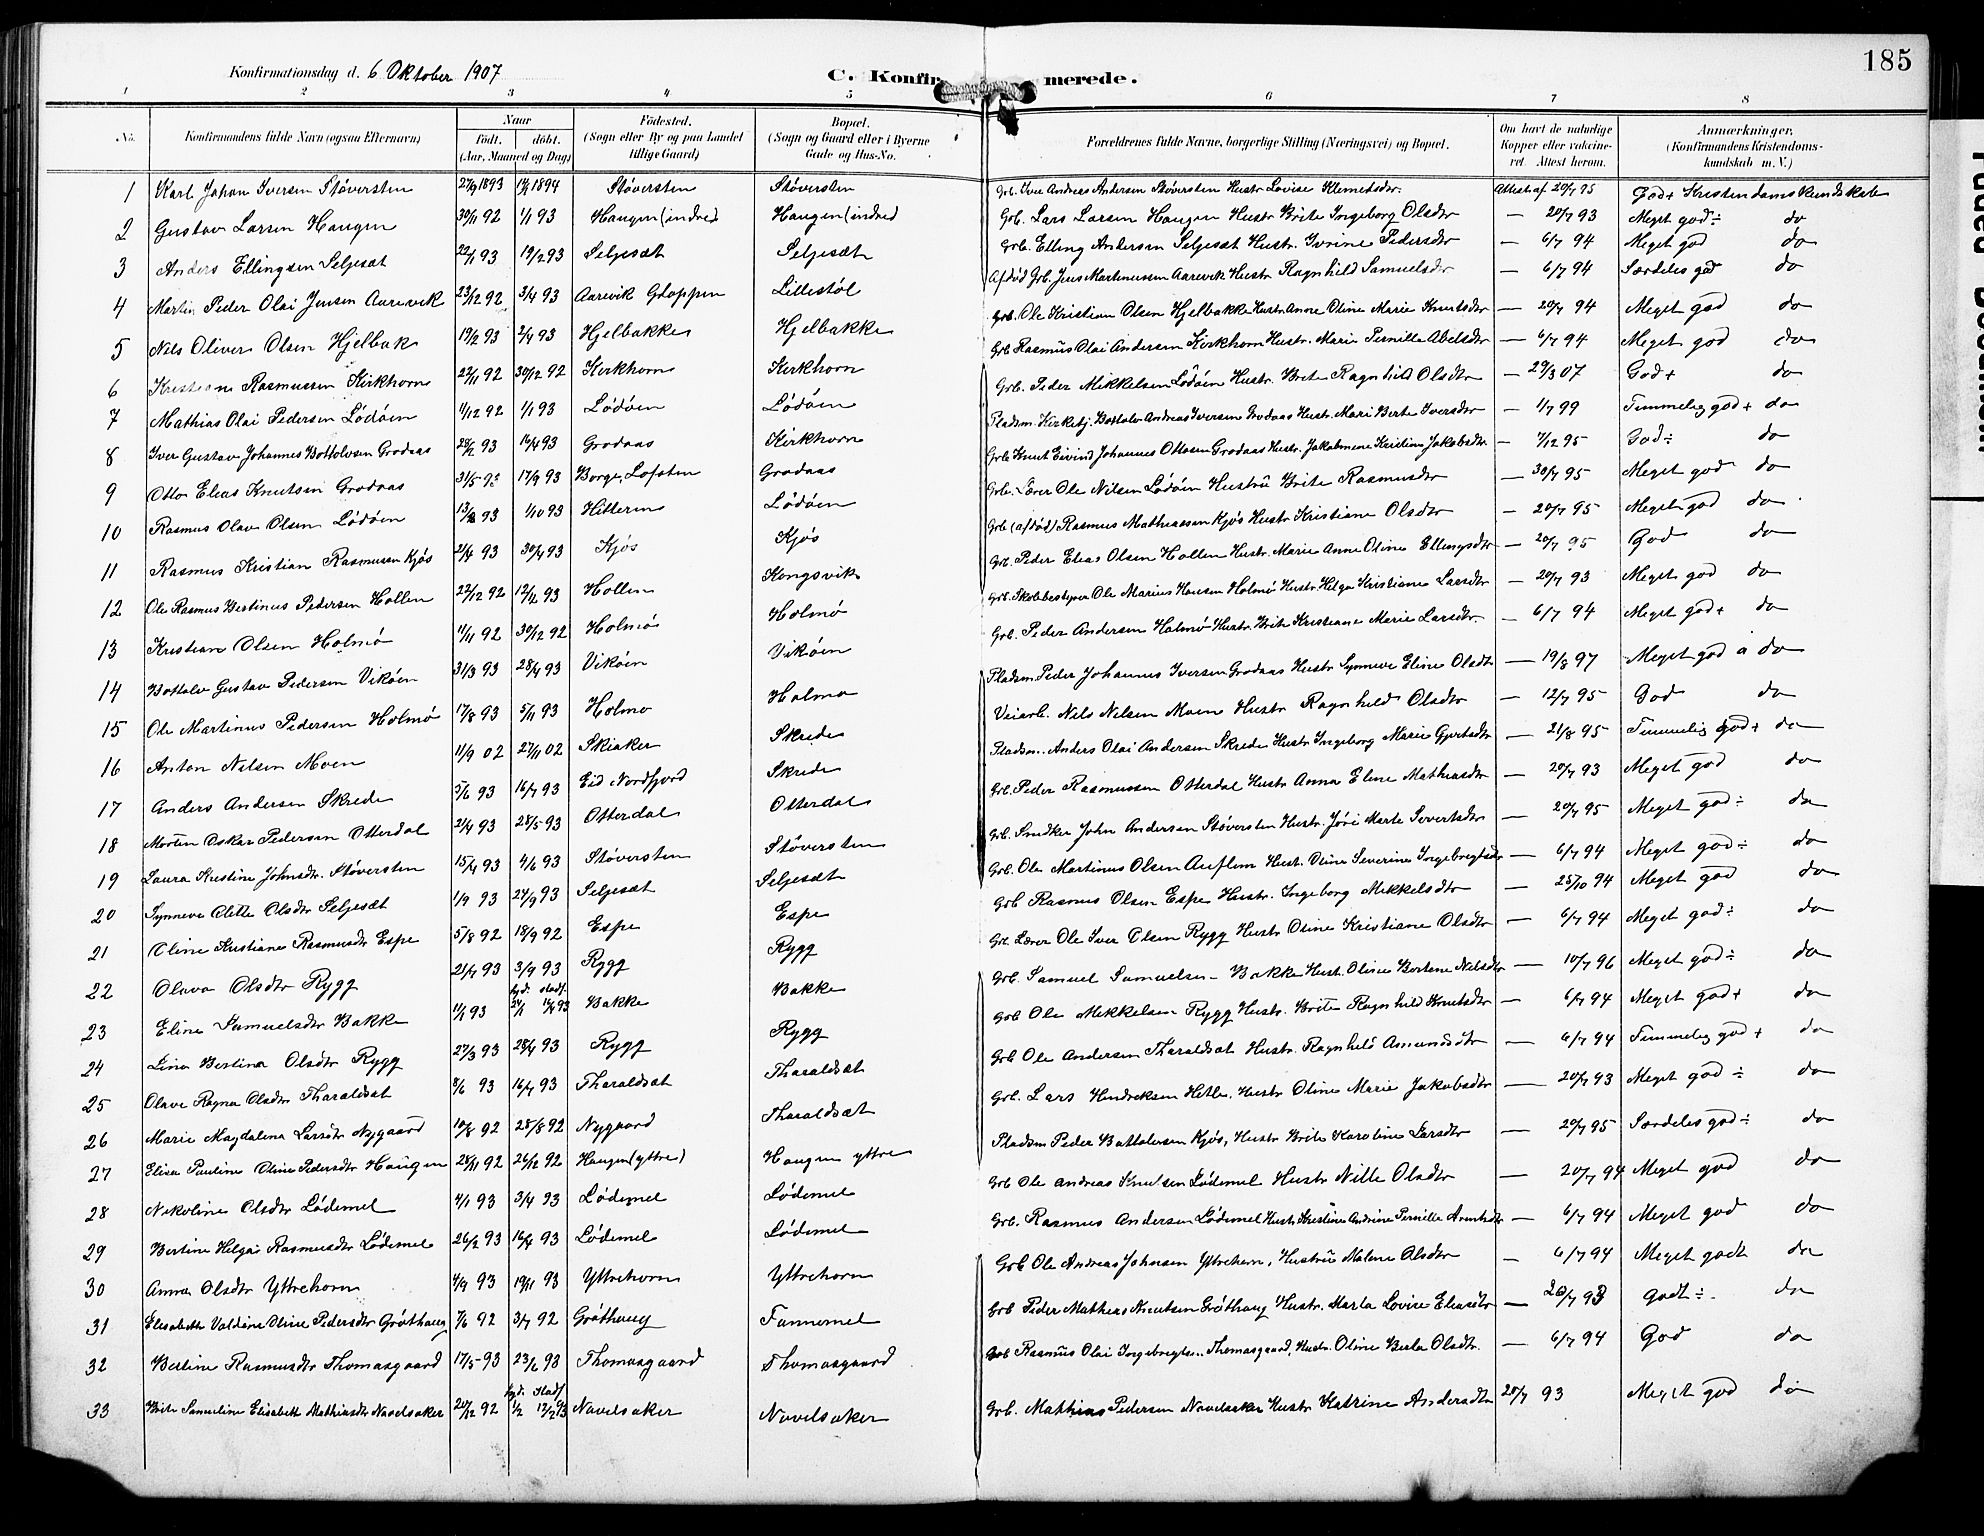 185
Konfirmationsdag d. 6 Oktober 1907
C. Konfir merede.
1 2 3 4 5 6 7 8
No. Konfirmandens fulde Navn (ogsaa Efternavn) Naar født. døbt. (Aar, Maaned og Dag) Fødested. (Sogn eller By og paa Landet tillige Gaard) Bopæl. (Sogn og Gaard eller i Byerne Gade og Hus-No. Forældrenes fulde Navne, borgerlige Stilling (Næringsvei) og Bopæl. Om havt de naturlige Kopper eller vaccineret. Attest herom. Anmærkninger. (Konfirmandens Kristendomskundskab m. V.)
1 Karl Johan Iversen Støversten 27/9 1893 1894 Støversten Støversten Grb. Iver Andreas Andersen Støversten Hustr. Lovise Klemedsdtr. Attest af 20/7 95 God + Kristendomskundskab
2 Gustav Larsen Haugen 30/11 92 1/1 93 Haugen (indred Haugen (indred Grb. Lars Larsen Haugen Hustr Brite Ingeborg Olsdtr — 20/7 93 Meget god ÷ do
3 Anders Ellingsen Seljesæt 22/1 93 19/2 93 Seljesæt Seljesæt Grb. Elling Andersen Seljesæt Hustr. Ivrine Pedersdtr — 6/7 94 Meget god do
4 Martin Peder Olai Jensen Aarevik 23/12 92 3/4 93 Aarevik Gloppen Lillestøl Afdød Grb. Jens Martinussen Aarevik Hustr Ragnhild Samuelsdtr — 6/7 94 Særdeles god do
5 Nils Oliver Olsen Hjelbak 19/2 93 2/4 93 Hjelbakke Hjelbakke Grb. Ole Kristian Olsen Hjelbakke Hustr. Anne Oline Marie Knutsdtr — 20/7 94 Meget god do
6 Kristian Rasmussen Kirkhorn 22/11 92 30/12 92 Kirkhorn Kirkhorn Grb Rasmus Olai Andersen Kirkhorn Hustr. Marie Pernille Abelsdtr — 6/7 94 Meget god do
7 Mathias Olai Pedersen Lødøen 11/12 92 1/1 93 Lødøen Lødøen Grb. Peder Mikkelsen Lødøen Hustr. Brite Ragnhild Olsdtr — 27/3 07 God + do
8 Iver Gustav Johannes Bottolvsen Grodaas 28/2 93 16/4 93 Grodaas Kirkhorn Pladsm. Kirketj. Bottolv Andreas Iversen Grodaas Hustr. Mari Berte Iversdtr — 1/7 99 Temmelig god + do
9 Otto Elias Knutsen Grodaas 31/5 93 17/9 93 Borge, Lofoten Grodaas Grb Knut Eivind Johannes Ottosen Grodaas Hustr. Jakobmine Kristine Jakobsdtr — 7/12 95 God ÷ do
10 Rasmus Olav Olsen Lødøen 93 1/10 93 Hitteren Lødøen Grb. Lærer Ole Nilsen Lødøen Hustru Brite Rasmusdtr — 30/7 95 Meget god do
11 Rasmus Kristian Rasmussen Kjøs 2/4 93 30/4 93 Kjøs Kjøs Grb (afdød) Rasmus Mathiassen Kjøs Hustr Kristiane Olsdtr — 20/7 95 Meget god do
12 Ole Rasmus Bertinus Pedersen Hollen 22/12 92 12/2 93 Hollen Kongsvik Grb. Peder Elias Olsen Hollen Hustr. Marie Anne Oline Ellingsdtr — 20/7 95 God do
13 Kristian Olsen Holmø 11/11 92 30/12 92 Holmø Holmø Grb. Skolebestyrer Ole Marius Hansen Holmø Hustr. Helga Kristiane Larsdtr — 20/7 93 Meget god do
14 Bottolv Gustav Pedersen Vikøen 31/3 93 28/4 93 Vikøen Vikøen Grb. Peder Andersen Holmø Hustr. Brite Kristiane Marie Larsdtr — 6/7 94 Meget god + do
15 Ole Martinus Pedersen Holmø 17/8 93 5/11 93 Holmø Holmø Pladsm Peder Johannes Iversen Grodaas Hustr Synneve Eline Olsdtr — 19/8 97 Meget god à do
16 Anton Nilsen Moen 11/9 02 27/11 02 Skiaker Skrede Veiarb. Nils Nilsen Moen Hustr Ragnhild Olsdtr — 12/7 95 God do
17 Anders Andersen Skrede 5/6 93 16/7 93 Eid Nordfjord Skrede Pladsm. Anders Olai Andersen Skrede Hustr. Ingeborg Marie Gjertsdtr — 21/8 95 Temmelig god + do
18 Morten Oskar Pedersen Otterdal 2/4 93 28/5 93 Otterdal Otterdal Grb. Peder Rasmussen Otterdal Hustr Anna Eline Mathiasdtr — 20/7 93 Meget god do
19 Laura Kristine Johnsdtr. Støversten 15/4 93 4/6 93 Støversten Støversten Grb. Snedker John Andersen Støversten Hustr. Jøri Marte Sivertsdtr — 20/7 95 Meget god ÷ do
20 Synneve Olette Olsdtr Seljesæt 1/9 93 24/9 93 Seljesæt Seljesæt Grb. Ole Martinus Olsen Auflem Hustr. Oline Severine Ingebregtsdtr — 6/7 94 Meget god ÷ do
21 Oline Kristiane Rasmusdtr Espe 5/8 92 18/9 92 Espe Espe Grb Rasmus Olsen Espe Hustr. Ingeborg Mekkelsdtr — 25/10 94 Meget god do
22 Olava Olsdtr Rygg 21/7 93 3/9 93 Rygg Rygg Grb. Lærer Ole Iver Olsen Rygg Hustr Oline Kristiane Olsdtr — 6/7 94 Meget god ÷ do
23 Eline Samuelsdtr Bakke 11/1 93 hjd. stadf. 24/1 16/4 93 Bakke Bakke Grb. Samuel Samuelsen Bakke Hustr. Oline Bertine Nilsdtr — 10/7 96 Meget god ÷ do
24 Lina Bertina Olsdtr Rygg 27/3 93 28/4 93 Rygg Rygg Grb Ole Mekkelsen Rygg Hustr. Brite Ragnhild Knutsdtr — 6/7 94 Meget god + do
25 Olave Ragna Olsdtr Tharaldsat 8/6 93 16/7 93 Tharaldsat Tharaldsat Grb Ole Andersen Tharaldsat Hustr. Ragnhild Amundsdtr — 6/7 94 Temmelig god + do
26 Marie Magdalena Larsdtr Nygaard 10/8 92 28/8 92 Nygaard Tharaldsæt Grb. Lars Hendriksen Hetle, Hustr Oline Marie Jakobsdtr — 20/7 93 Meget god ÷ do
27 Elisa Pauline Oline Pedersdtr Haugen 28/11 92 26/12 92 Haugen (yttre) Haugen yttre Pladsm Peder Bottolvsen Kjøs, Hustr Brite Karoline Larsdtr — 20/7 95 Særdeles god ÷ do
28 Nikoline Olsdtr Lødemel 4/1 93 3/4 93 Lødemel Lødemel Grb Ole Andreas Knutsen Lødemel Hustr Nille Olsdtr — 20/7 94 Meget god do
29 Bertine Helga Rasmusdtr Lødemel 26/2 93 16/4 93 Lødemel Lødemel Grb. Rasmus Andersen Lødemel Hustr Kristine Andrine Pernille — 6/7 94 Meget god do
30 Anna Olsdtr Yttrehorn 4/9 93 19/11 93 Yttrehorn Yttrehorn Grb Ole Andreas Johnsen Yttrehorn, Hustru Malene Olsdtr — 6/7 94 Meget godt do
31 Elisabeth Valdine Oline Pedersdtr Grøthaug 7/6 92 3/7 92 Grøthaug Fannemel Grb Peder Mathias Knutsen Grøthaug Hustr. Marta Lovise Eliasdtr — 20/7 93 Godt ÷ do
32 Berline Rasmusdtr Thomasgaard 17/5 93 23/6 93 Thomasgaard Thomasgaard Grb Rasmus Olai Ingebregtsen Thomasgaard, Hustr. Oline Berte Olsdtr. — 6/7 94 God do
33 Brite Samueline Elisabeth Mathiasdtr Navelsaker 20/12 92 hjd. stadf. 1/2 12/2 93 Navelsaker Navelsaker Grb. Mathias Pedersen Navelsaker Hustr Katrine Andersdtr 20/7 93 Meget god do